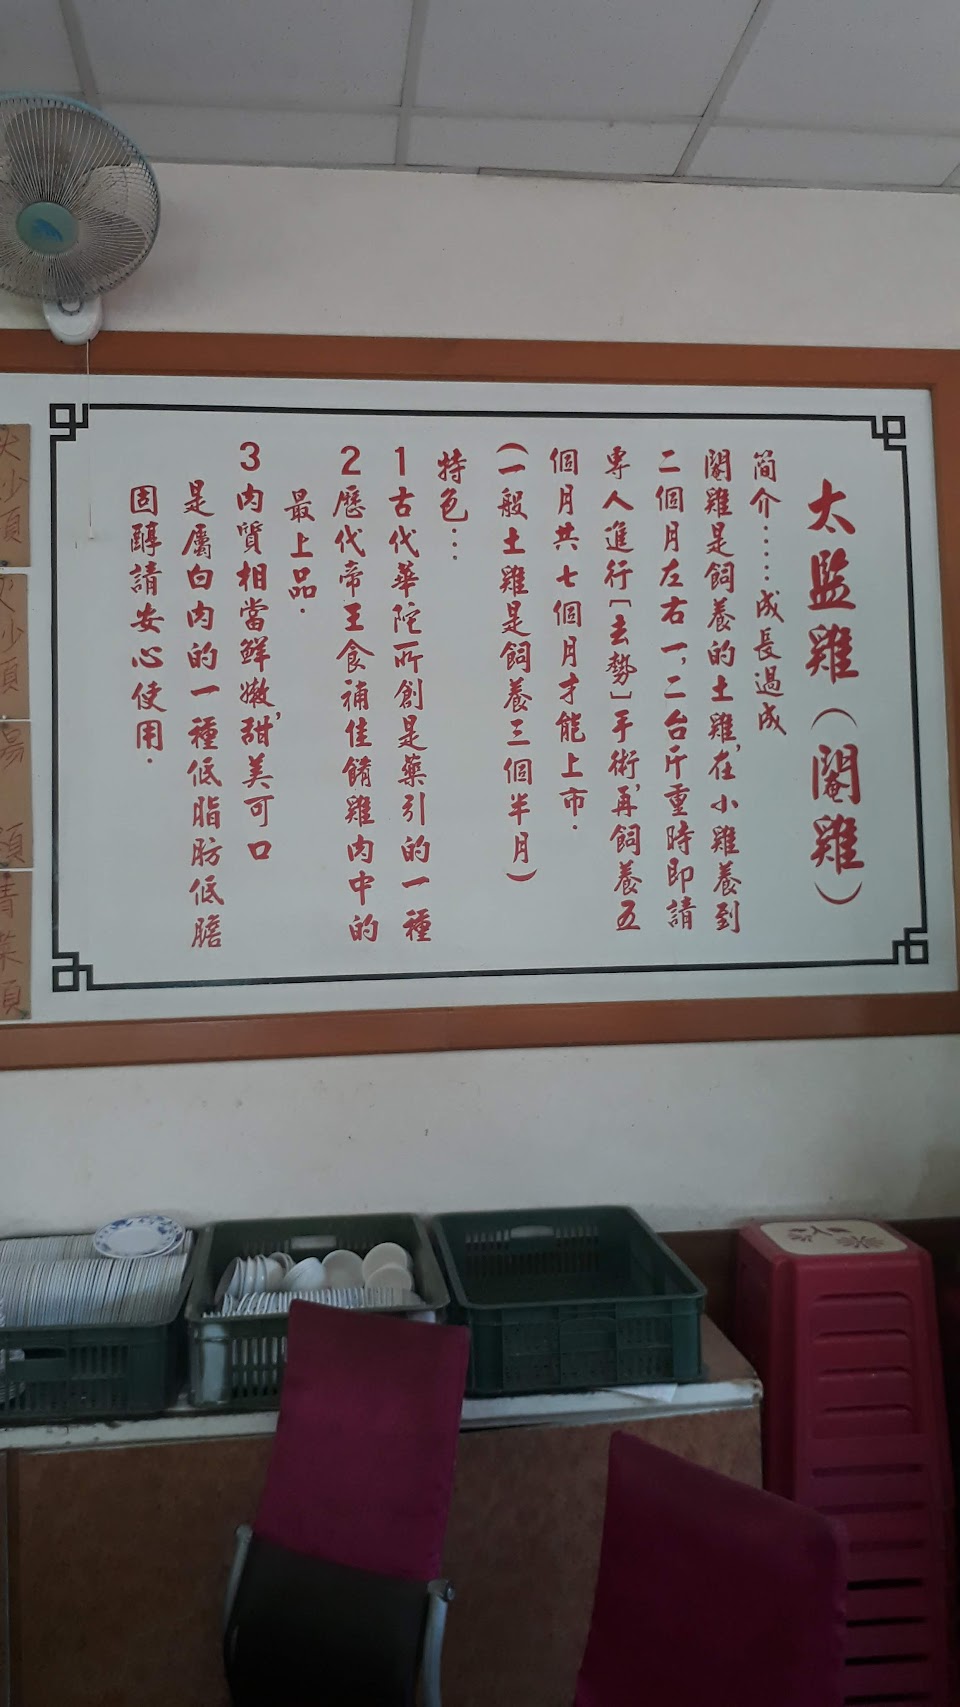 太監雞（閹雞）
簡介......成長過成
閹雞是飼養的土雞，在小雞養到
二個月左右一，二台斤重時即請
專人進行［去勢］手術，再飼養五
個月共七個月才能上市．
（一般土雞是飼養三個半月）
特色...
1古代華陀所創是藥引的一種
2歷代帝王食補佳餚雞肉中的
最上品．
3肉質相當鮮嫩，甜美可口
是屬白肉的一種低脂肪低膽
固醇請安心使用．
炒
湯
青菜